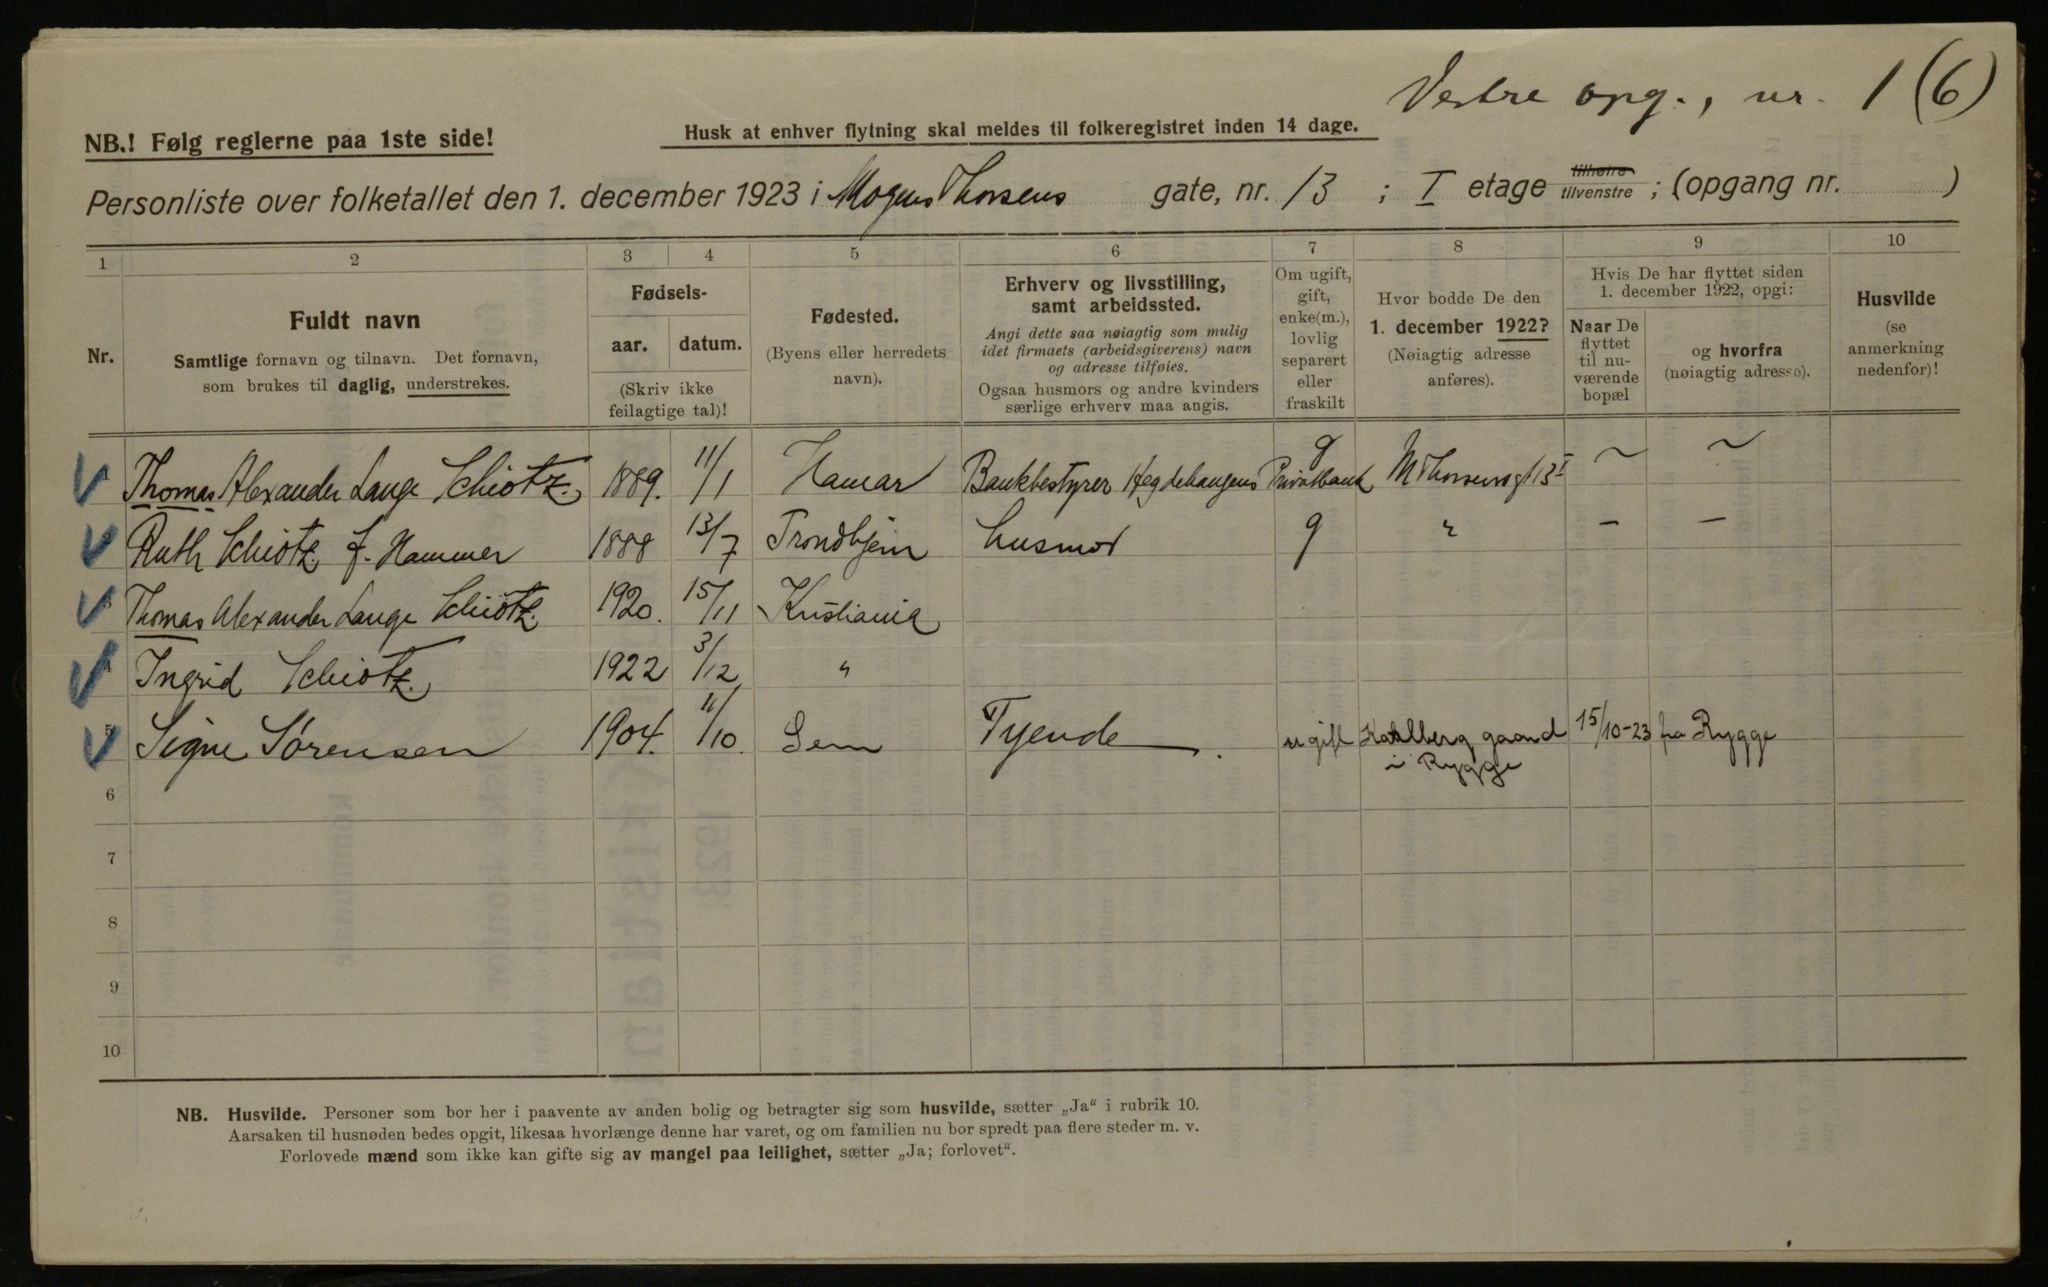 Vestre opg., nr. 1 (6)
NB.! Følg reglerne paa 1ste side!
Husk at enhver flytning skal meldes til folkeregistret inden 14 dage.
Personliste over folketallet den 1. december 1923 i Mogens Thorsens gate, nr. 13 ; I etage tilhøire tilvenstre ; (opgang nr. )
1 2 3 4 5 6 7 8 9 10
Nr.
Fuldt navn
Samtlige fornavn og tilnavn. Det fornavn,
som brukes til daglig, understrekes.
Fødsels-
aar. datum.
(Skriv ikke
feilagtige tal)!
Fødested.
(Byens eller herredets
navn).
Erhverv og livsstilling,
samt arbeidssted.
Angi dette saa nøiagtig som mulig
idet firmaets (arbeidsgiverens) navn
og adresse tilføies.
Ogsaa husmors og andre kvinders
særlige erhverv maa angis.
Om ugift,
gift,
enke(m.),
lovlig
separert
eller
fraskilt
Hvor bodde De den
1. december 1922?
(Nøiagtig adresse
anføres).
Hvis De har flyttet siden
1. december 1922, opgi:
Naar De
flyttet
til nu-
værende
bopæl
og hvorfra
(nøiagtig adresse).
Husvilde
(se
anmerkning
nedenfor)!
Thomas Alexander Lange Schiøtz. 1889. 11/1 Hamar Bankbestyrer Hegdehaugens Privatbank g M Thorsensgt 13 I ~ ~
Ruth Schiøtz f. Hammer 1888 13/7 Trondhjem husmor g " – –
3 Thomas Alexander Lange Schiøtz. 1920. 15/11 Kristiania
4 Ingrid Schiøtz. 1922 3/12 "
5 Signe Sørensen 1904. 11/10. Sem Tyende. ugift gaard 15/10-23 fra Rygge
i Rygge
6
7
8
9
10
NB. Husvilde. Personer som bor her i paavente av anden bolig og betragter sig som husvilde, sætter „Ja“ i rubrik 10.
Aarsaken til husnøden bedes opgit, likesaa hvorlænge denne har varet, og om familien nu bor spredt paa flere steder m. v.
Forlovede mænd som ikke kan gifte sig av mangel paa leilighet, sætter „Ja; forlovet“.